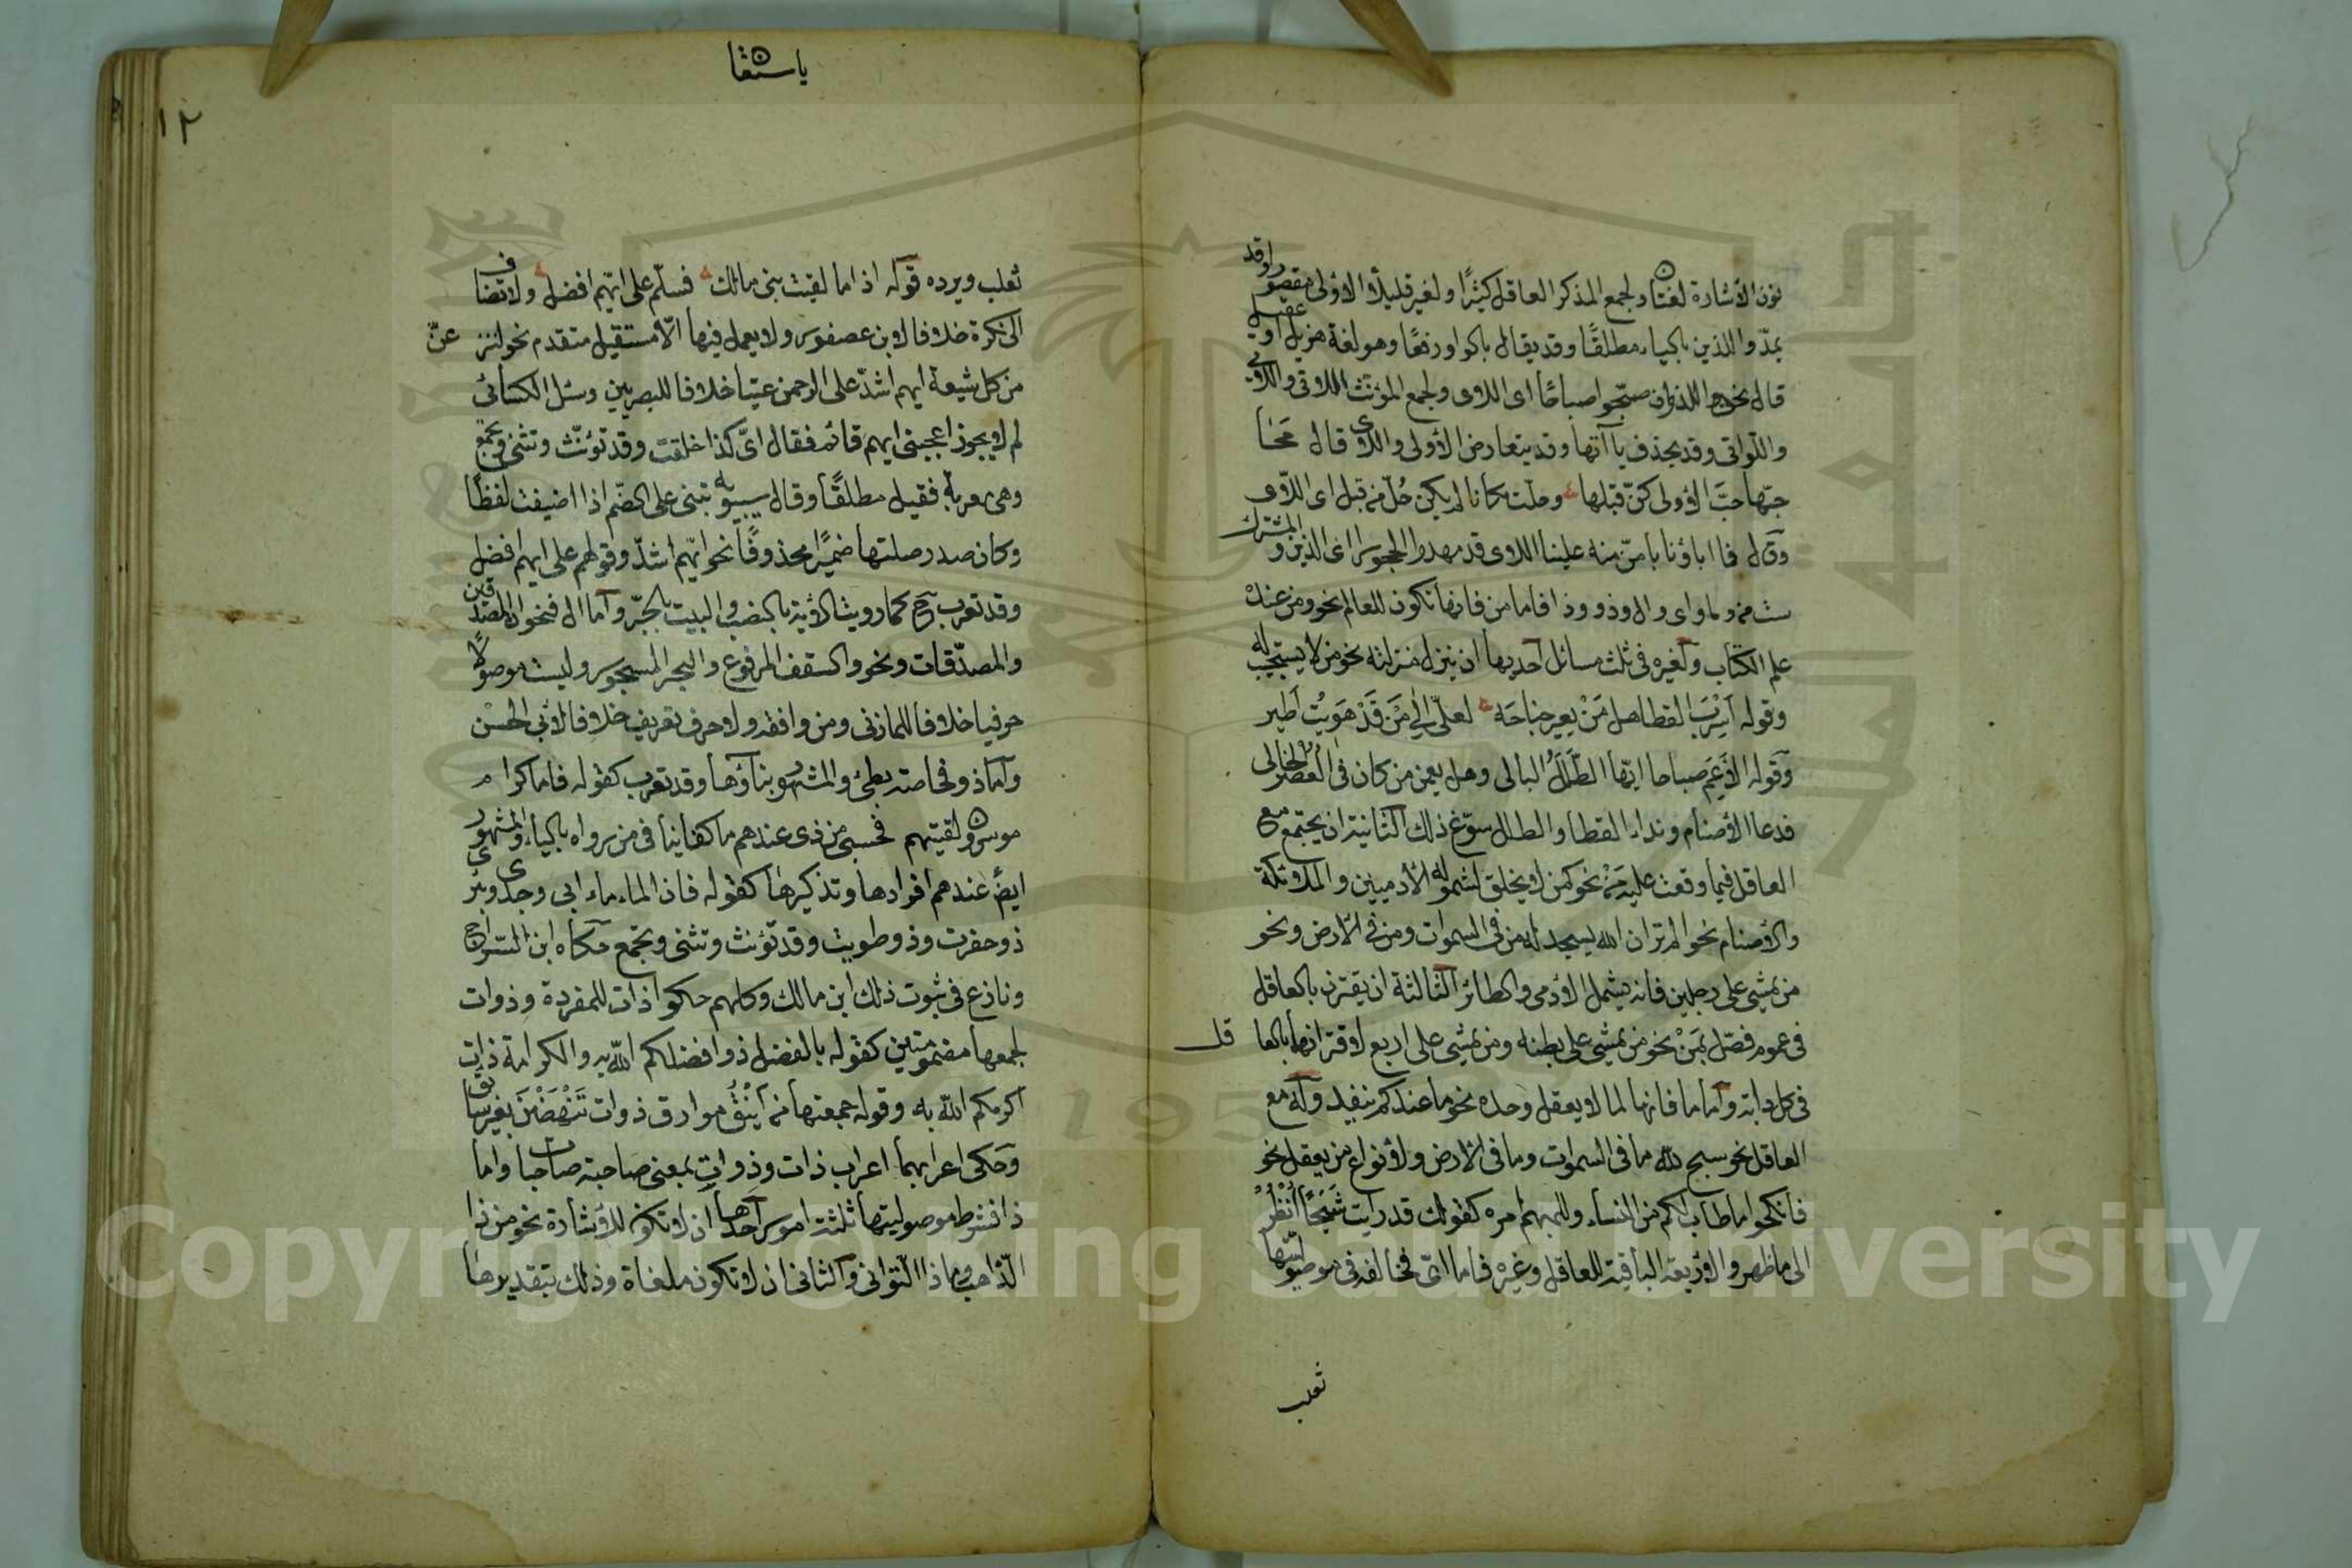 نون الاشارة لغتان ولجمع المذكر العاقل كثيرًا ولغير قليلًا الاولى مقصورا وقد
يمدّ والذين بالياء مطلقًا وقد يقال بالواو رفعًا وهو لغة هزيل او عقيل
قال نحن اللذون صبّحوا صباحًا اى اللاوى ولجمع المؤنث اللاتى واللائى
واللواتى وقد يحذف يا آتها وقد يتعارض الاولى واللاى قال محا
حبّها حبَّ الاولى كنّ قبلها وحلّت مكانا لم يكن حُلّ من قبل اى اللاوى
وقال فما اباؤنا بامنّ منه علينا اللاوى قد مهدوا الحجورا اى الذين والمشترك
ست من وما واى وال وذو وذا فاما من فانها تكون للعالم نحو ومن عنده
علم الكتاب ولغيره فى ثلث مسائل احديها ان ينزل منزلته نحو من لا يستجيب له
وقوله اسِرْبَ القطا هل مَنْ يعير جناحَه لعلّى الى مَن قَدْ هَوِيْتُ اَطير
وقوله الا عَم صباحا ايّها الطَّلَلُ البالى وهل يعمن من كان فى العُصُرُ الخالى
فدعا الاصنام ونداء القطا والطلل سوّغ ذلك الثانية ان يجتمع مع
العاقل فيما وقعت عليه مَنْ نحو كمن لا يخلق لشموله الآدميين والملائكة
والاصنام نحو الم تر ان الله يسجد له من فى السموات ومن فى الارض ونحو
من يمشى على رجلين فانه يشمل الآدمى والطائر الثالثة ان يقترن بالعاقل
فى عموم فصّل بمَنْ نحو من يمشى على بطنه ومن يمشى على اربع لاقترانها بالعا قل
فى كل دابة واما ما فانها لما لا يعقل وحده نحو ما عندكم ينفد وله مع
العاقل نحو سبح لله ما فى السموات وما فى الارض ولانواع من يعقل نحو
فانكحوا ما طاب لكم من النساء وللمبهم امره كقولك قد رايت شَبَحًا اُنْظُرْ
الى ما ظهر والاربعة الباقية للعاقل وغيره فاما اىّ فخالف فى موصوليّتها
ثعلب
ياستقا
١٢
ثعلب ويرده قوله اذا ما لقيت بنى مالك فسلّم على ايّهم افضل ولا تضاف
الى نكرة خلافا لابن عصفور ولا يعمل فيها الّا مستقبل متقدم نحو لننز عنّ
من كل شيعة ايهم اشدّ على الرحمن عتيا خلافا للبصريين وسئل الكسائى
لم لا يجوز اعجبنى ايهم قام فقال اىّ كذا خلقت وقد تؤنّث وتثنى وتجمع
وهى معربة فقيل مطلقًا وقال سيبويه تبنى على الضم اذا اضيفت لفظًا
وكان صدر صلتها ضميرًا محذوفًا نحو ايّهم اشدّ وقولهم على ايهم افضل
وقد تعرب ح كما رويت الآية بالنصب والبيت بالجرّ واما ال فنحو المصّدّقين
والمصدّقات ونحو والسقف المرفوع والبحر المسجور وليست موصولًا
حرفيا خلافا للمازنى ومن وافقه ولا حرف تعريف خلافا لابى الحسن
واما ذو فخاصة بطئ والمشهور بناؤها وقد تعرب كقوله فاما كرام
موسرون لقيتهم فحسبى من ذى عندهم ما كفانيا فى من رواه بالياء والمشهور
ايضً عندهم افرادها وتذكيرها كقوله فان الماء ماء ابى وجدى وبئرى
ذو حفرت وذو طويت وقد تؤنث وتثنى وتجمع حكاه ابن السراج
ونازع فى ثبوت ذلك ابن مالك وكلهم حكوا ذات للمفردة وذوات
لجمعها مضمومتين كقوله بالفضل ذو افضلكم اللّه به والكرامة ذات
اكرمكم اللّه به وقوله جمعتها من اَيْنُقٍ موارق ذوات تَنْهَضْنَ بغير سائق
وحكى اعرابهما اعراب ذات وذوات بمعنى صاحبة صاحبات واما
ذا فشرط موصوليتها ثلثة امور احدها ان لا تكون للاشارة نحو من ذا
الذّاهب وماذا التّوانى والثانى ان لا تكون ملغاة وذلك بتقديرها
Copyright © King Saud University
195